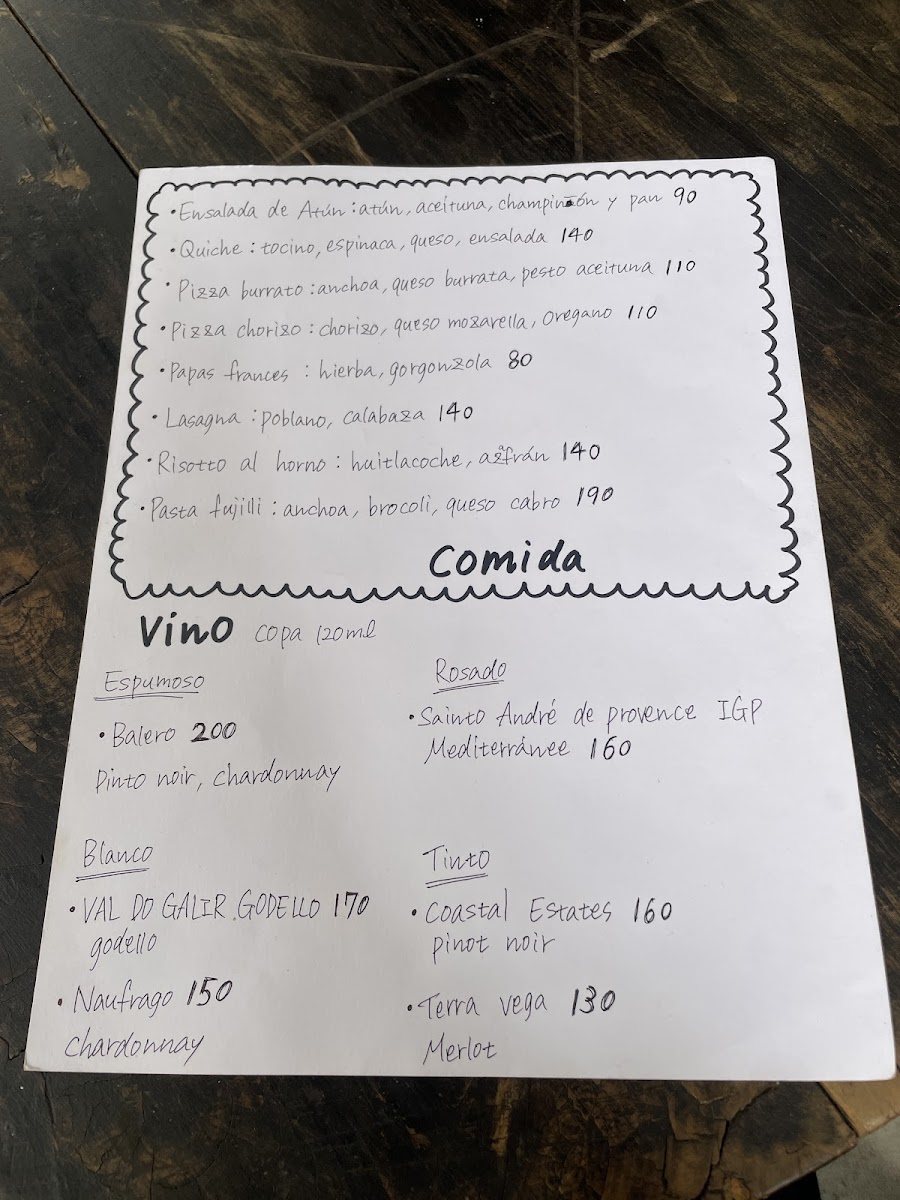 • Ensalada de Atún : atún, aceituna, champinón y pan 90
• Quiche : tocino, espinaca, queso, ensalada 140
• Pizza burrato : anchoa, queso burrata, pesto aceituna 110
• Pizza chorizo : chorizo, queso mozarella, oregano 110
• Papas frances : hierba, gorgonzola 80
• Lasagna : poblano, calabaza 140
• Risotto al horno : huitlacoche, azfrán 140
• Pasta fujilli : anchoa, brocoli, queso cabro 190
Comida
Vino copa 120ml
Espumoso
• Balero 200
pinto noir, chardonnay
Rosado
• Sainto André de provence IGP
Mediterránee 160
Blanco
• VAL DO GALIR. GODELLO 170
godello
• Naufrago 150
chardonnay
Tinto
• Coastal Estates 160
pinot noir
• Terra vega 130
Merlot